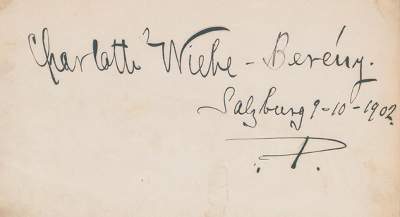 Charlotte Wiehe-Berény.
Salzburg 9-10-1902.